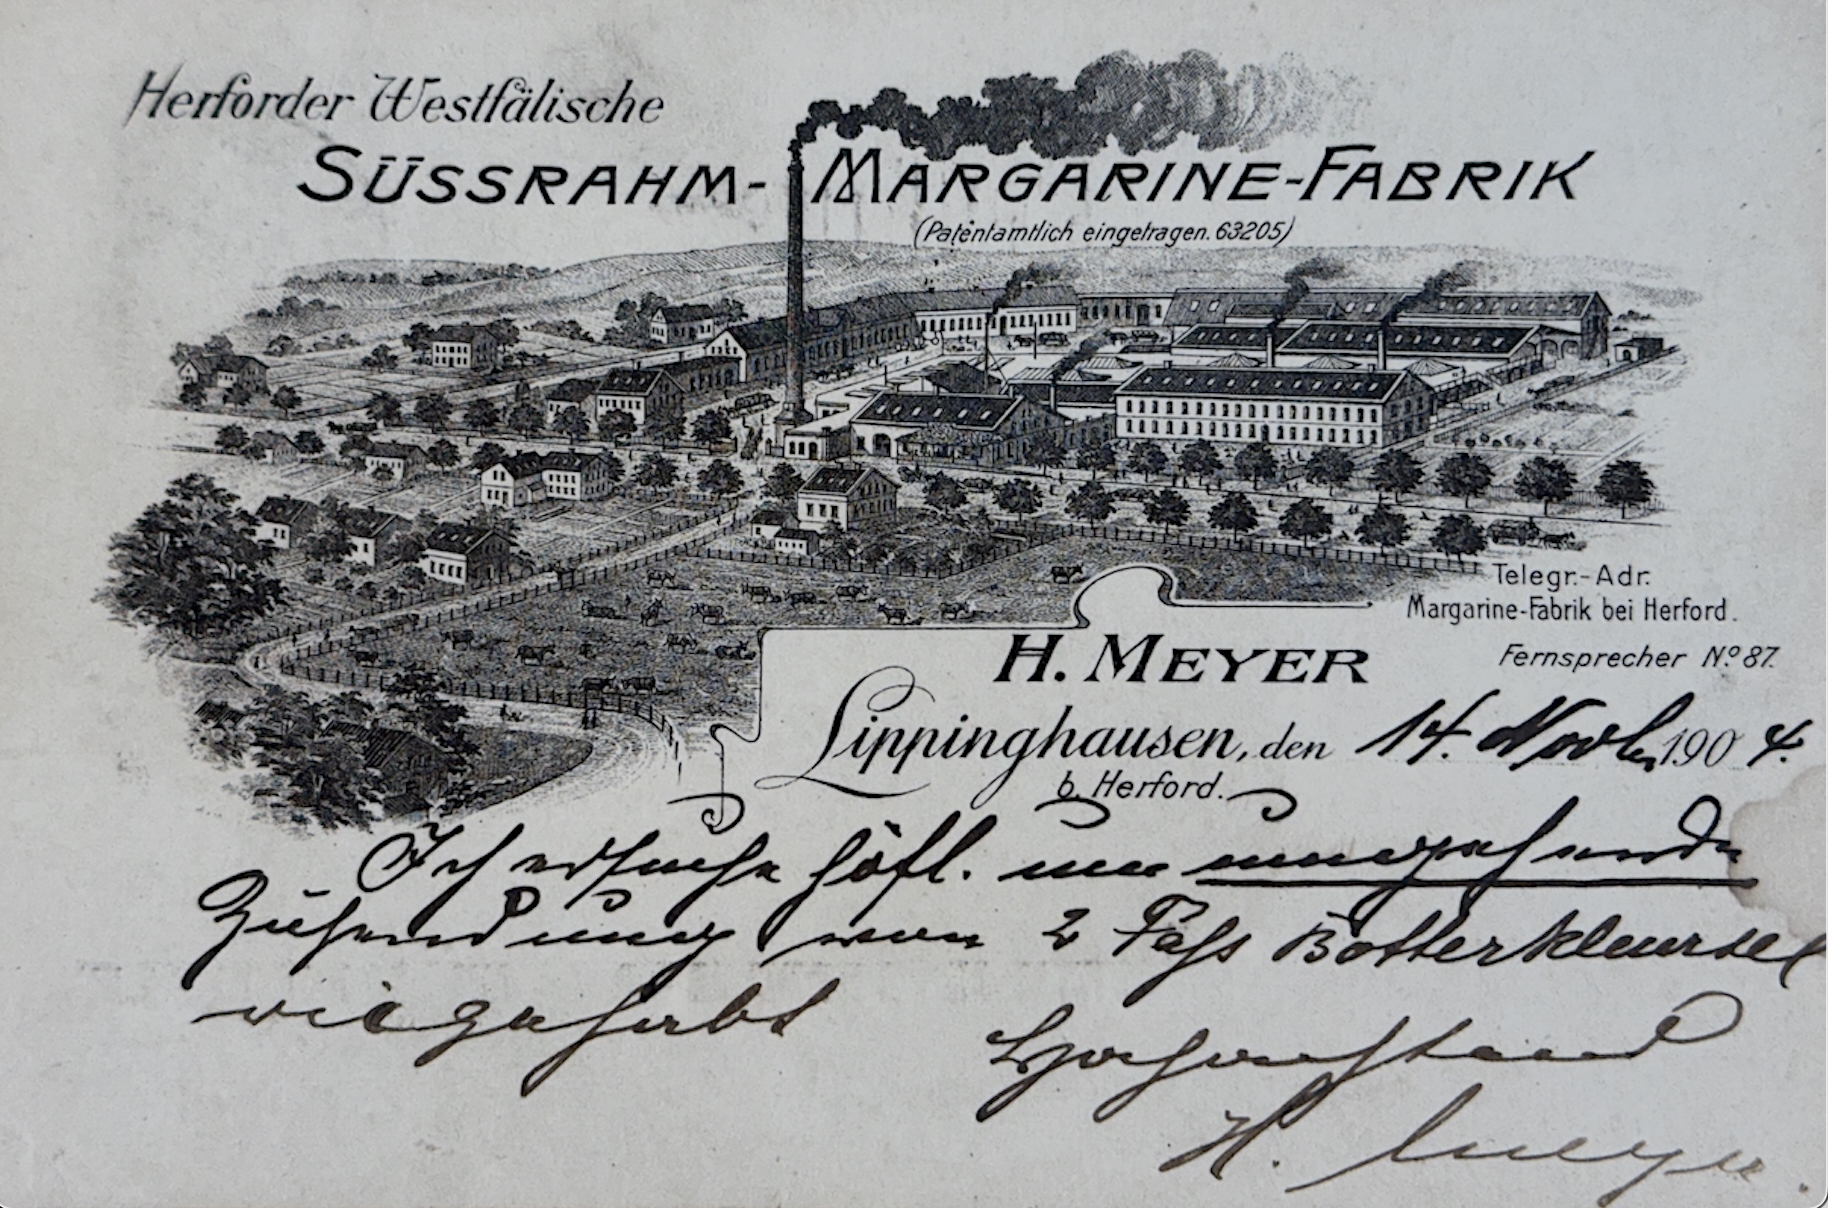 Herforder Westfälische
SÜSSRAHM-MARGARINE-FABRIK
(Patentamtlich eingetragen. 63205)
Telegr.-Adr.
Margarine-Fabrik bei Herford.
H. MEYER
Fernsprecher No. 87.
Lippinghausen, den 14. Novbr. 1904.
b. Herford.
Ich ersuche höfl. um umgehende
Zusendung von 2 Fass Botterkleursel
wie gehabt
Hochachtend
H. Meyer.